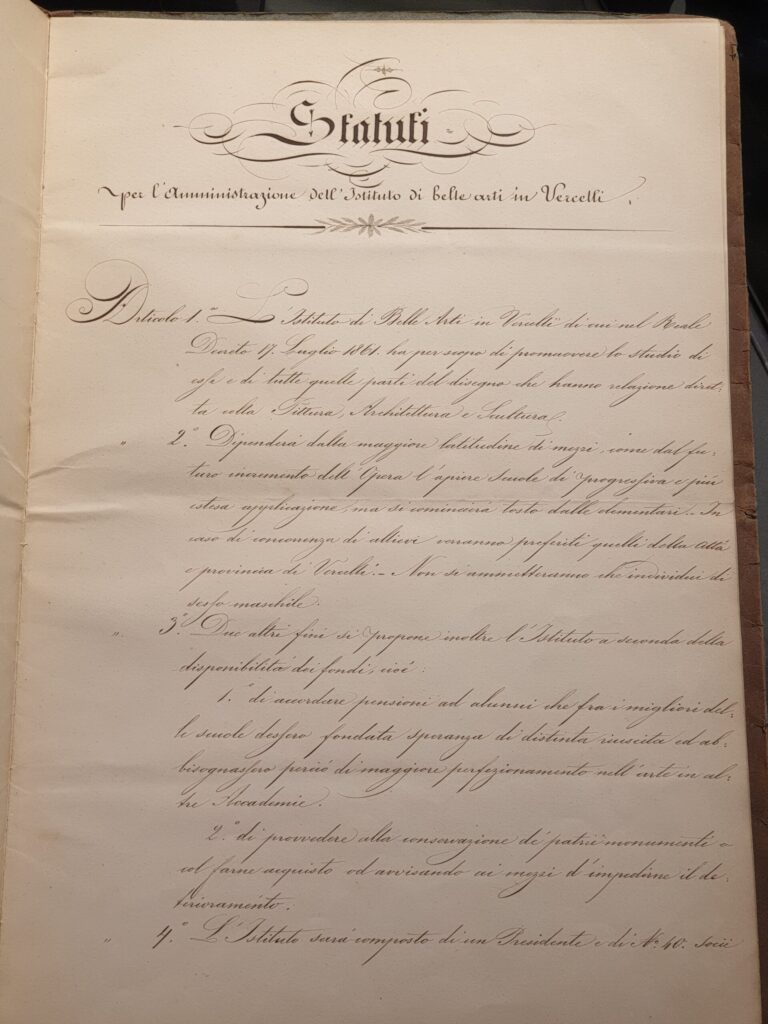 Statuti
per l'Amministrazione dell'Istituto di belle arti in Vercelli.
Articolo 1.° L'Istituto di Belle Arti in Vercelli di cui nel Reale
Decreto 17. Luglio 1861. ha per iscopo di promuovere lo studio di
esse e di tutte quelle parti del disegno che hanno relazione diret-
ta colla Pittura, Architettura e Scultura.
" 2.° Dipenderà dalla maggiore latitudine di mezzi, come dal fu-
turo incremento dell'Opera l'aprire scuole di progressiva e più
estesa applicazione, ma si comincierà tosto dalle elementari. - In
caso di concorrenza di allievi verranno preferiti quelli della Città
e provincia di Vercelli. - Non si ammetteranno che individui di
sesso maschile.
" 3.° Due altri fini si propone inoltre l'Istituto a seconda della
disponibilità dei fondi, cioè:
1.° di accordare pensioni ad alunni che fra i migliori del-
le scuole dessero fondata speranza di distinta riuscita ed ab-
bisognassero perciò di maggiore perfezionamento nell'arte in al-
tre Accademie.
2.° di provvedere alla conservazione de' patrii monumenti o
col farne acquisto od avvisando ai mezzi d'impedirne il de-
terioramento.
" 4.° L'Istituto sarà composto di un Presidente e di N.° 40. Socii